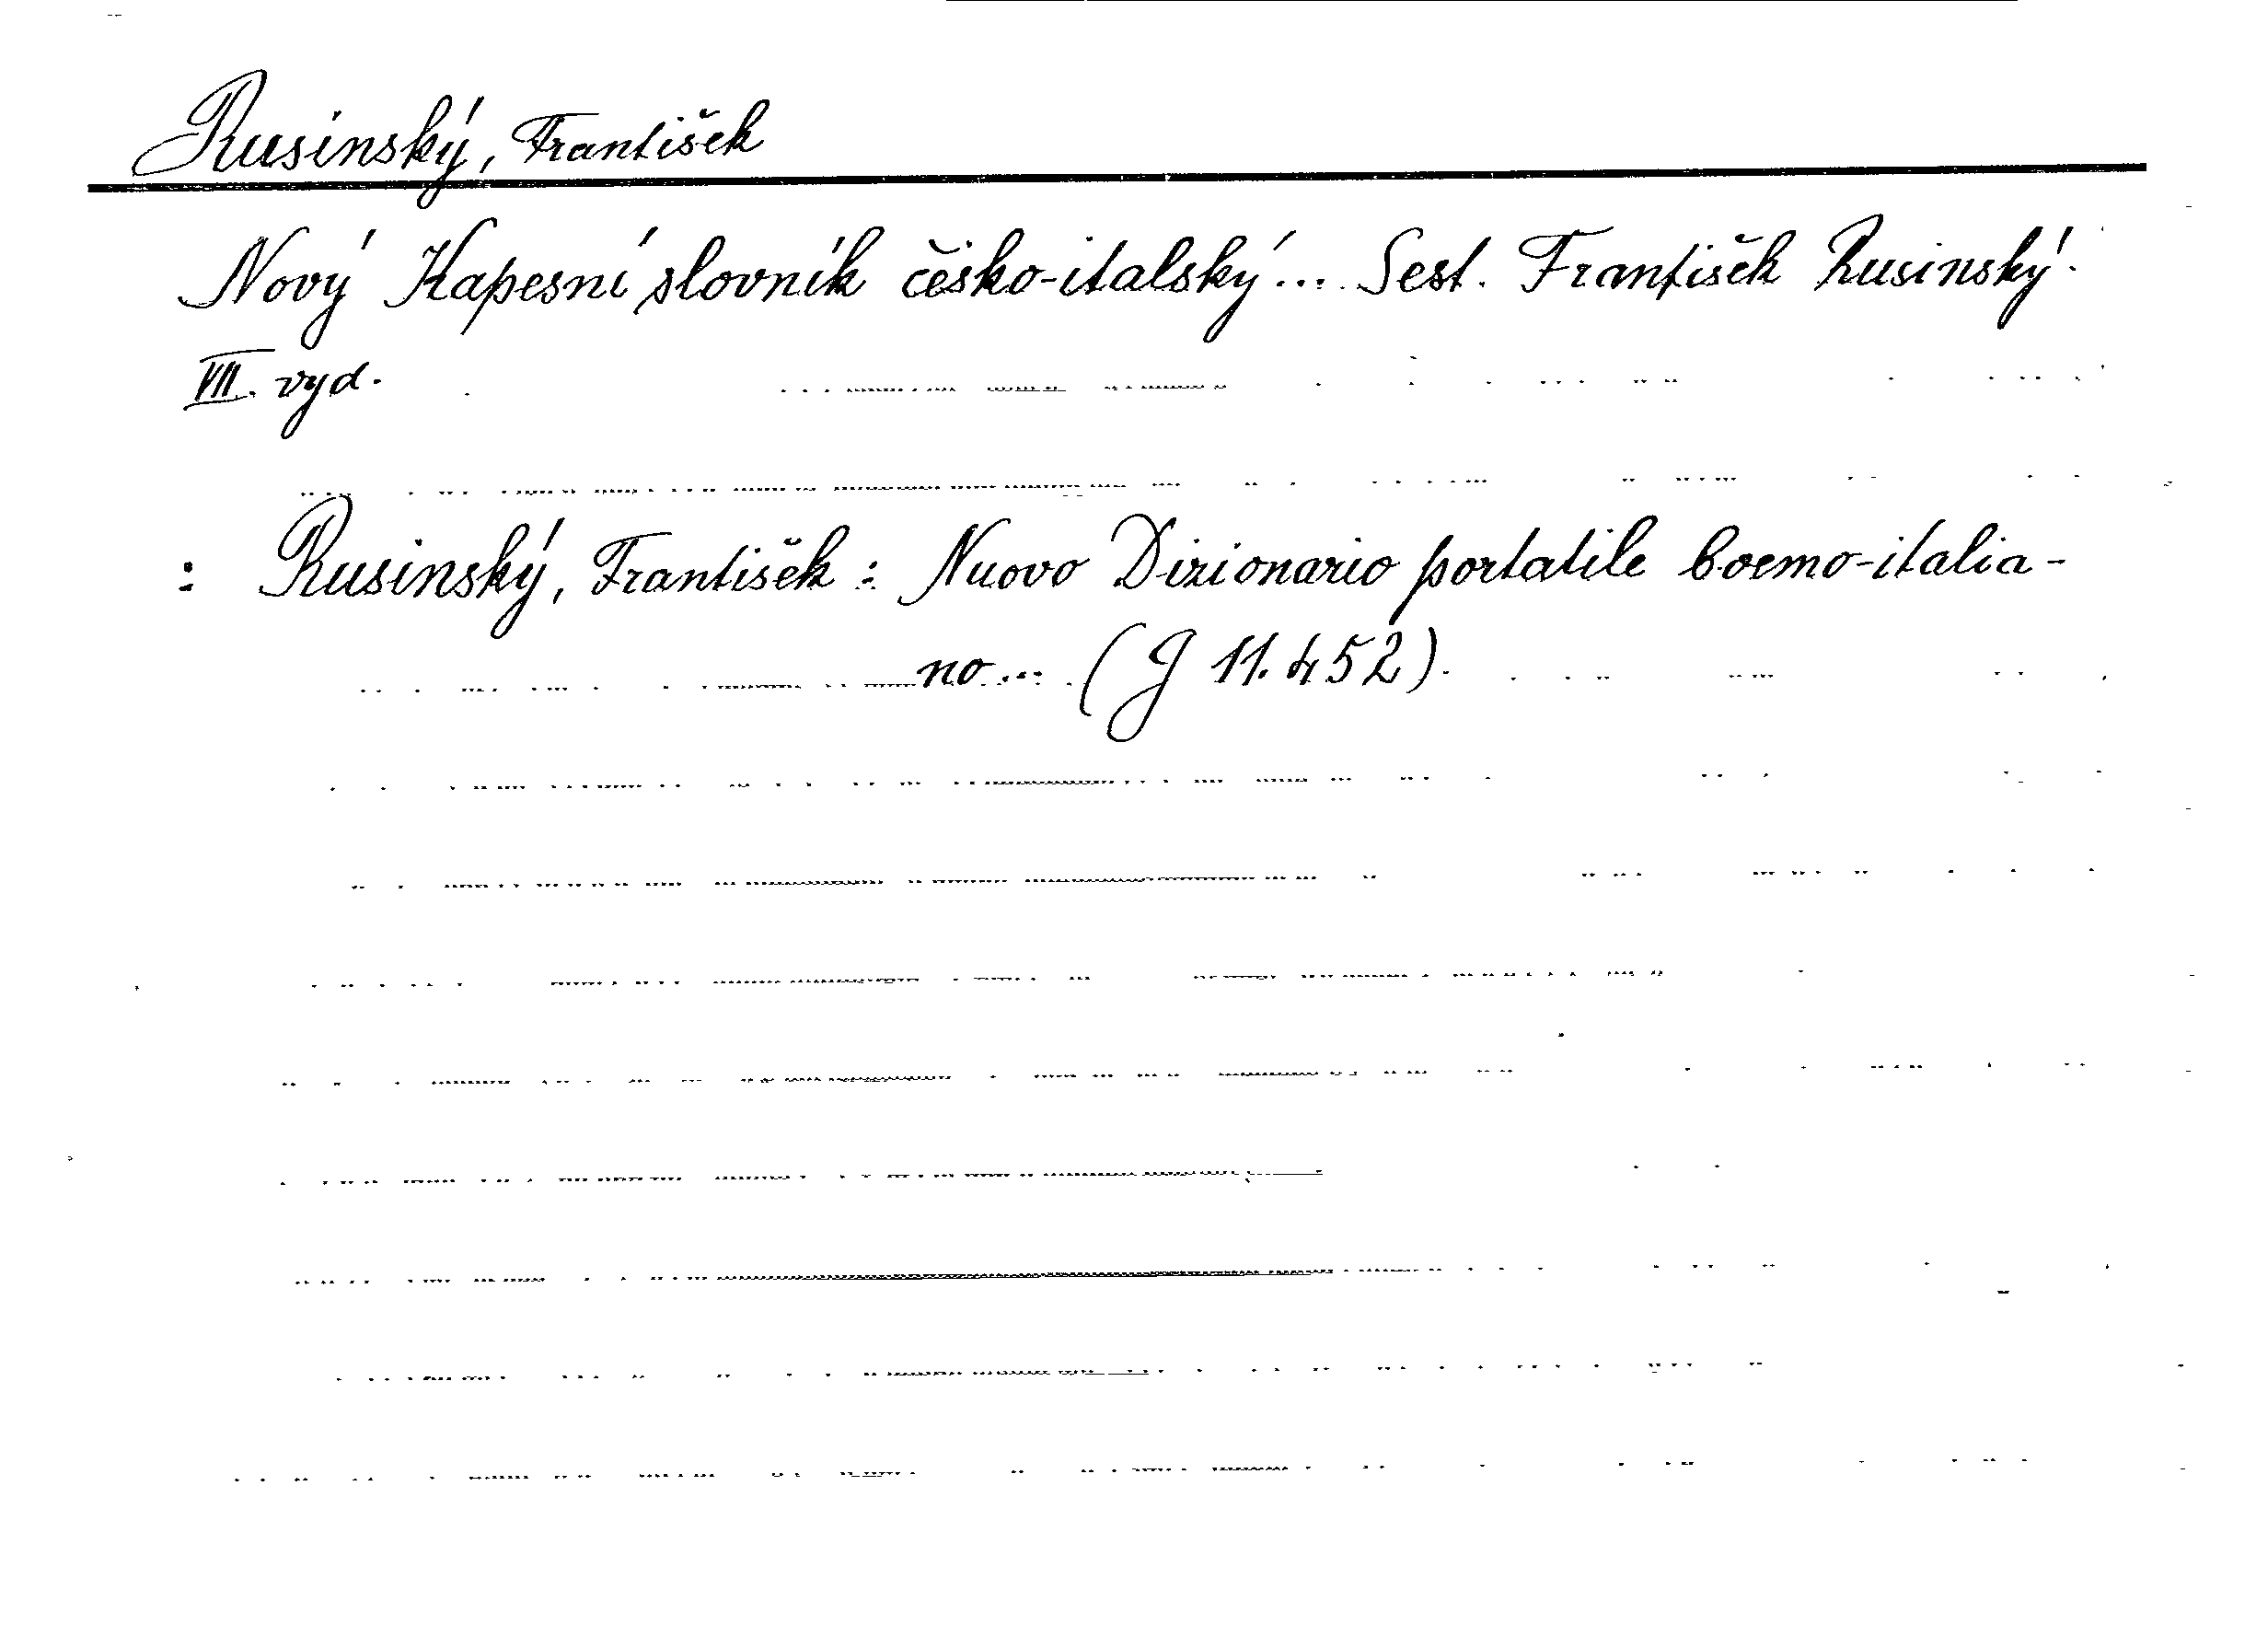 Rusinský, František
Nový Kapesní slovník česko-italský... Sest. František Rusinský.
VII. vyd.
: Rusinský, František : Nuovo Dizionario portatile boemo-italia-
no... (J 11.452).